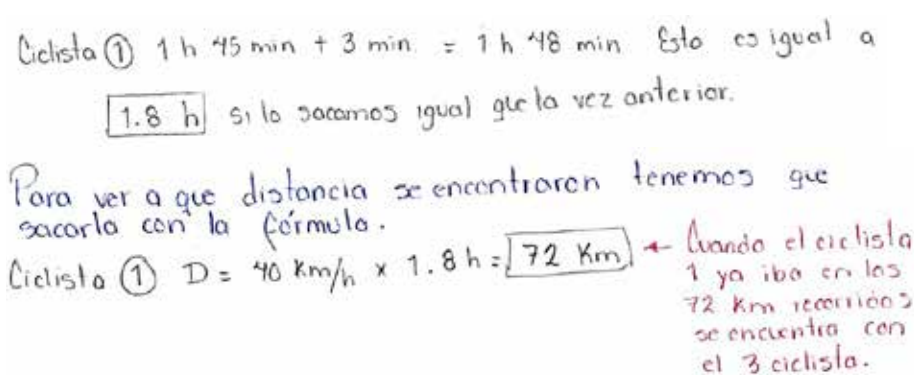 Ciclista ① 1 h 45 min + 3 min = 1 h 48 min Esto es igual a
1.8 h si lo sacamos igual que la vez anterior.
Para ver a que distancia se encontraron tenemos que
sacarlo con la fórmula.
Ciclista ① D = 40 Km/h x 1.8 h = 72 Km ← Cuando el ciclista
1 ya iba en los
72 Km recorridos
se encuentra con
el 3 ciclista.